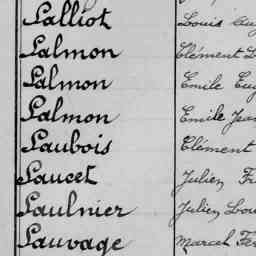 Salliot Louis Eug
Salmon Clément L
Salmon Emile Eug
Salmon Emile Jean
Saubois Clément
Saucet Julien Fr
Saulnier Julien Lou
Sauvage Marcel Fer